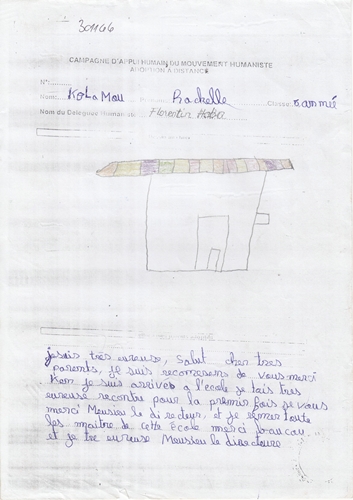 301166
CAMPAGNE D'APPUI HUMAIN DU MOUVEMENT HUMANISTE
ADOPTION A DISTANCE
N°:
Nom: KoLa Mou Rachelle Classe:
Nom du Délégué Humaniste: Florentin Haba
jesuis très eureuse, Salut cher tres
parents, je suis reconesens de vous merci
Kan je suis arriveé a l'école je tais tres
eureuse recontu pour la premier fois je vous
merci Mensieu le directeur, et je remer toute
les maitre de cette École merci boaucau
et je tre eureuse Mensieu le directeure